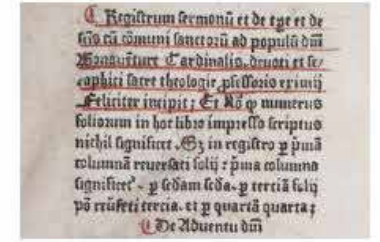 Registrum sermonū et de tp̄e et de
sc̄is cū cōmuni sanctorū ad populū dn̄i
Bonauenture Cardinalis. deuoti et se/
raphici sacre theologie ꝓfessoris eximij
Feliciter incipit; Et Nō ꝙ numerus
foliorum in hoc libro impresso scriptus
nichil significet. Sz in registro ꝑ pͥmā
columnā reuersati folij: pͥma columna
ꝑ terciā folij
tercia. et ꝑ quartā quarta;
De Aduentu dn̄i